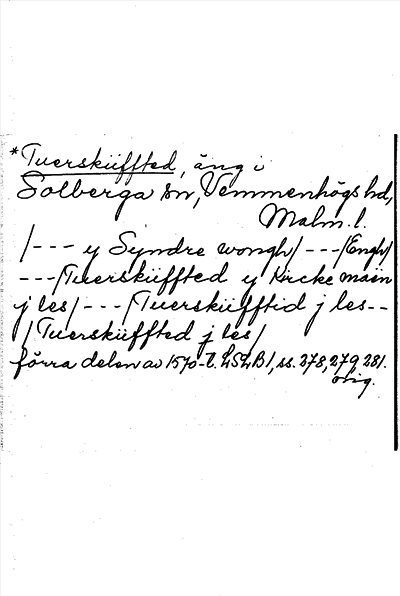 *Tuerskiiffted, äng i
Solberga sn, Vemmenhögs hd,
Malm. l.
/--- y Syndre wongh/ --- /Engh/
--- /Tuerskiiffted y Kircke maen
j les/ --- /Tuerskiifftid j les--
/Tuerskiiffted j les/
förra delen av 1570-t. LSLB 1, ss. 278, 279, 281.
orig.